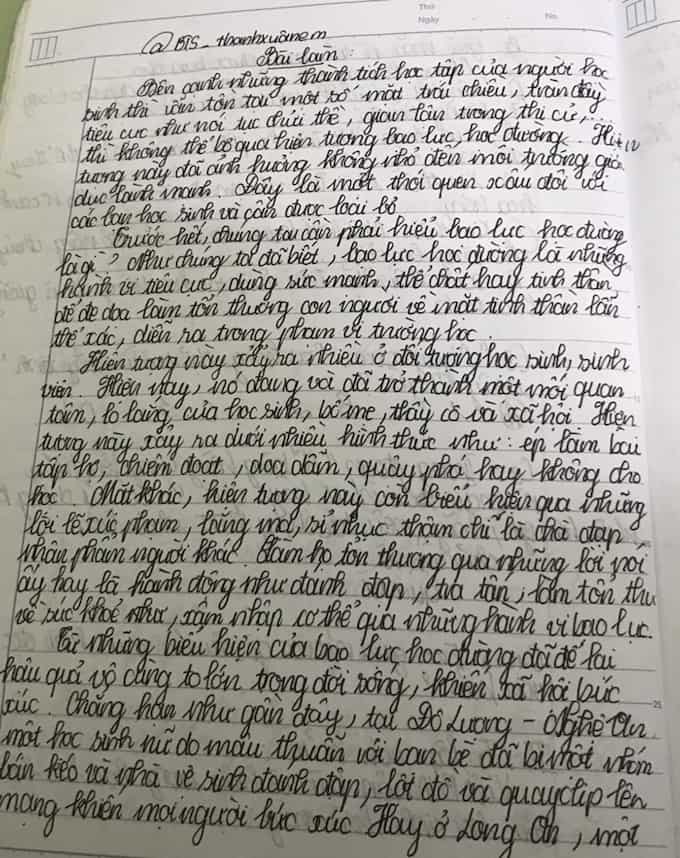 Thứ
Ngày
No.
@BTS_thanhxuânem
Bài làm:
Bên cạnh những thành tích học tập của người học
sinh thì vẫn tồn tại một số mặt trái chiều, tràn đầy
tiêu cực như nói tục chửi thề, gian lận trong thi cử,...
thì không thể bỏ qua hiện tượng bạo lực học đường. Hiện
tượng này đã ảnh hưởng không nhỏ đến môi trường giáo
dục lành mạnh. Đây là một thói quen xấu đối với
các bạn học sinh và cần được loại bỏ
Trước hết, chúng ta cần phải hiểu bạo lực học đường
là gì? Như chúng ta đã biết, bạo lực học đường là những
hành vi tiêu cực, dùng sức mạnh, thể chất hay tinh thần
để đe dọa làm tổn thương con người về mặt tinh thần lẫn
thể xác, diễn ra trong phạm vi trường học.
Hiện tượng này xảy ra nhiều ở đối tượng học sinh, sinh
viên. Hiện nay, nó đang và đã trở thành một mối quan
tâm, lo lắng của học sinh, bố mẹ, thầy cô và xã hội. Hiện
tượng này xảy ra dưới nhiều hình thức như: ép làm bài
tập hộ, chiếm đoạt, dọa dẫm, quậy phá hay không cho
học. Mặt khác, hiện tượng này còn biểu hiện qua những
lời lẽ xúc phạm, lăng mạ, sỉ nhục thậm chí là chà đạp
nhân phẩm người khác. Làm họ tổn thương qua những lời nói
ấy hay là hành động như đánh đập, tra tấn, làm tổn thư
về sức khoẻ như, xâm nhập cơ thể qua những hành vi bạo lực.
Từ những biểu hiện của bạo lực học đường đã để lại
hậu quả vô cùng to lớn trong đời sống, khiến xã hội bức
25
xúc. Chẳng hạn như gần đây, tại Đô Lương - Nghệ An
một học sinh nữ do mâu thuẫn với bạn bè đã bị một nhóm
bạn kéo vào nhà vệ sinh đánh đập, lột đồ và quay clip lên
mạng khiến mọi người bức xúc. Hay ở Long An, một